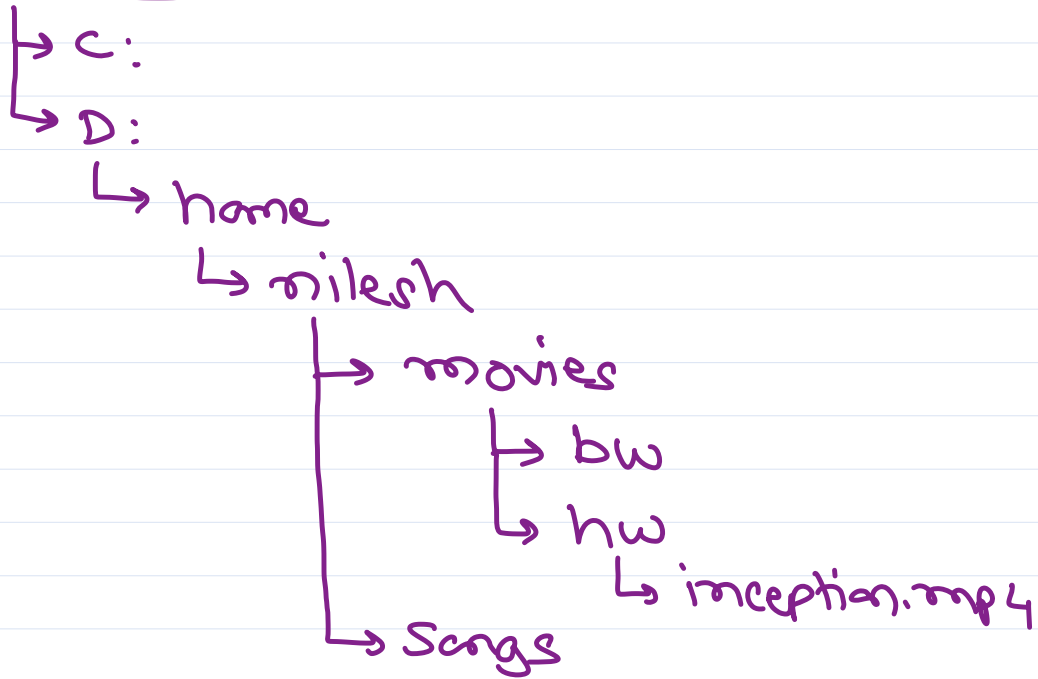 C:
D:
home
nilesh
movies
bw
hw
inception.mp4
Songs